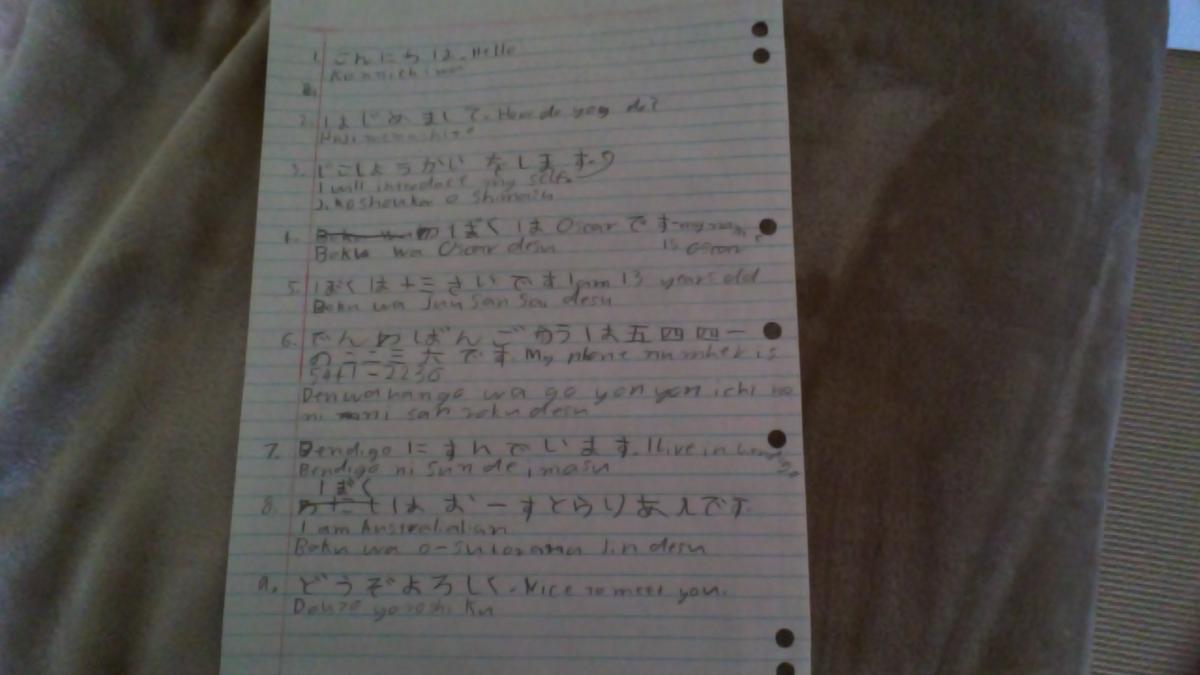 1. こんにちは. Hello
Konnichiwa
2. はじめまして. How do you do?
Hajimemashite
3. じこしょうかいをします.
I will introduce my self.
Jikoshoukai o shimasu
4. ぼくは Oscar です. my name is Oscar
Boku wa Oscar desu
5. ぼくは十三さいです I am 13 years old
Boku wa Juu San Sai desu
6. でんわばんごうは五四四一
の二二三六です My phone number is
5441-2236
Denwabango wa go yon yon ichi no
ni ni san roku desu
7. Bendigo にすんでいます. I live in Bendigo
Bendigo ni Sun de imasu
ぼく
8. はおーすとらりあ人です.
I am Australialian
Boku wa o-sutoraria Jin desu
9. どうぞよろしく. Nice to meet you.
Douzo yoroshi Ku